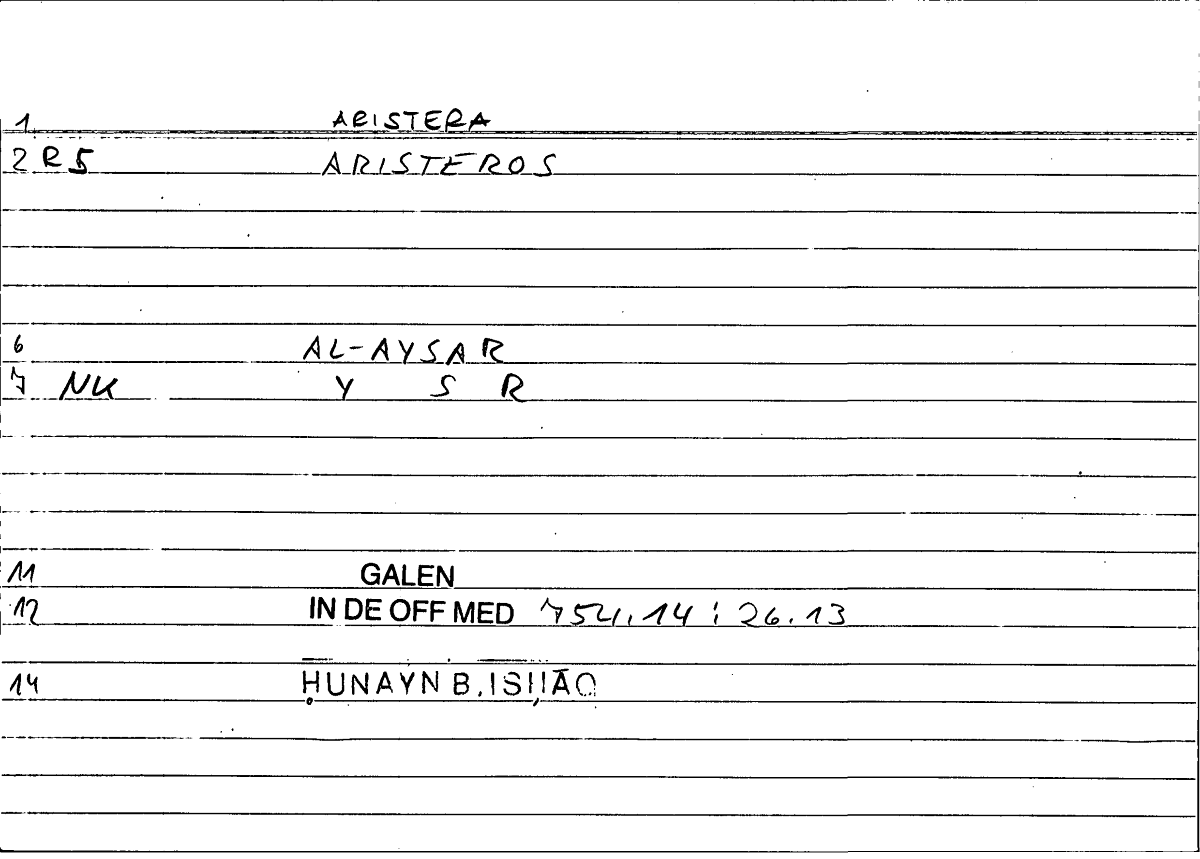 1 ARISTERA
2 R5 ARISTEROS
6 AL-AYSAR
7 NK Y S R
11 GALEN
12 IN DE OFF MED 754.14 : 26.13
14 ḤUNAYN B. ISḤĀQ